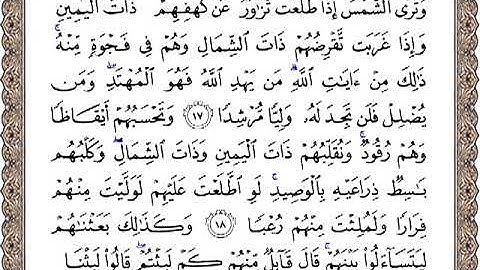 وَتَرَى ٱلشَّمْسَ إِذَا طَلَعَت تَّزَٰوَرُ عَن كَهْفِهِمْ ذَاتَ ٱلْيَمِينِ
وَإِذَا غَرَبَت تَّقْرِضُهُمْ ذَاتَ ٱلشِّمَالِ وَهُمْ فِى فَجْوَةٍ مِّنْهُ ۚ
ذَٰلِكَ مِنْ ءَايَٰتِ ٱللَّهِ ۗ مَن يَهْدِ ٱللَّهُ فَهُوَ ٱلْمُهْتَدِ ۖ وَمَن
يُضْلِلْ فَلَن تَجِدَ لَهُۥ وَلِيًّا مُّرْشِدًا ١٧ وَتَحْسَبُهُمْ أَيْقَاظًا
وَهُمْ رُقُودٌ ۚ وَنُقَلِّبُهُمْ ذَاتَ ٱلْيَمِينِ وَذَاتَ ٱلشِّمَالِ ۖ وَكَلْبُهُم
بَٰسِطٌ ذِرَاعَيْهِ بِٱلْوَصِيدِ ۚ لَوِ ٱطَّلَعْتَ عَلَيْهِمْ لَوَلَّيْتَ مِنْهُمْ
فِرَارًا وَلَمُلِئْتَ مِنْهُمْ رُعْبًا ١٨ وَكَذَٰلِكَ بَعَثْنَٰهُمْ
لِيَتَسَآءَلُوا۟ بَيْنَهُمْ ۚ قَالَ قَآئِلٌ مِّنْهُمْ كَمْ لَبِثْتُمْ ۖ قَالُوا۟ لَبِثْنَا